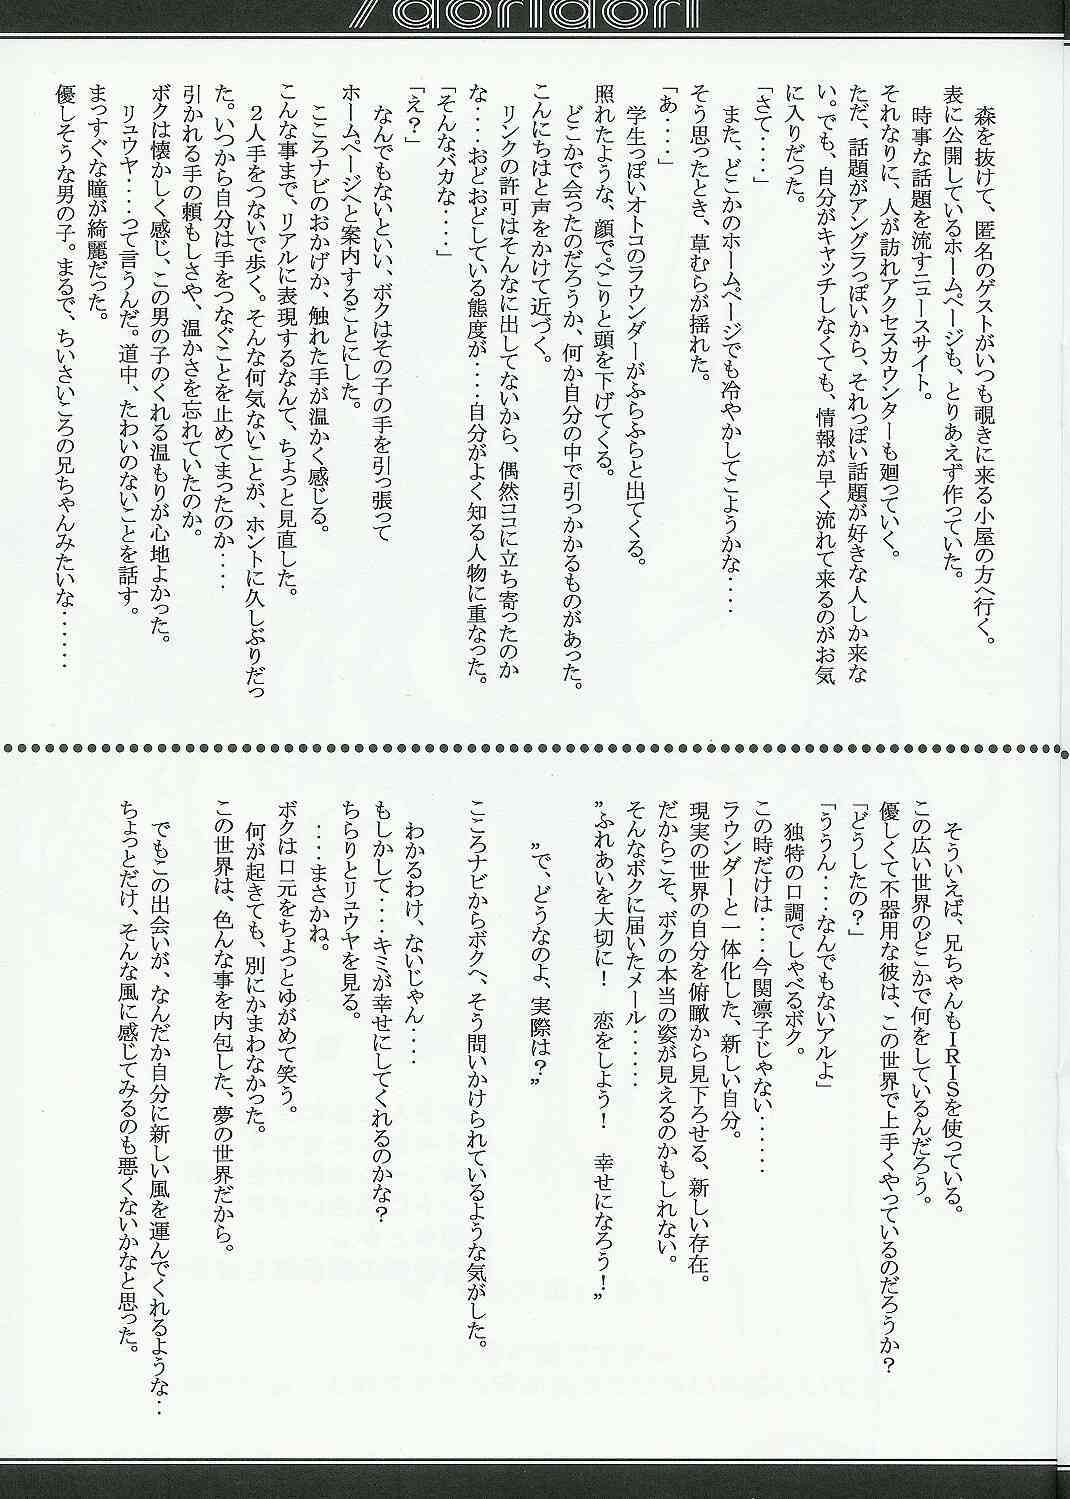 doridori
森を抜けて、匿名のゲストがいつも覗きに来る小屋の方へ行く。
表に公開しているホームページも、とりあえず作っていた。
時事な話題を流すニュースサイト。
それなりに、人が訪れアクセスカウンターも廻っていく。
ただ、話題がアングラっぽいから、それっぽい話題が好きな人しか来な
い。でも、自分がキャッチしなくても、情報が早く流れて来るのがお気
に入りだった。
「さて・・・・」
また、どこかのホームページでも冷やかしてこようかな・・・・
そう思ったとき、草むらが揺れた。
「あ・・・・」
学生っぽいオトコのラウンダーがふらふらと出てくる。
照れたような、顔でぺこりと頭を下げてくる。
どこかで会ったのだろうか、何か自分の中で引っかかるものがあった。
こんにちはと声をかけて近づく。
リンクの許可はそんなに出してないから、偶然ココに立ち寄ったのか
な・・・・おどおどしている態度が・・・・自分がよく知る人物に重なった。
「そんなバカな・・・・」
「え？」
なんでもないといい、ボクはその子の手を引っ張って
ホームページへと案内することにした。
こころナビのおかげか、触れた手が温かく感じる。
こんな事まで、リアルに表現するなんて、ちょっと見直した。
２人手をつないで歩く。そんな何気ないことが、ホントに久しぶりだっ
た。いつから自分は手をつなぐことを止めてまったのか・・・・
引かれる手の頼もしさや、温かさを忘れていたのか。
ボクは懐かしく感じ、この男の子のくれる温もりが心地よかった。
リュウヤ・・・・って言うんだ。道中、たわいのないことを話す。
まっすぐな瞳が綺麗だった。
優しそうな男の子。まるで、ちいさいころの兄ちゃんみたいな・・・・・・
そういえば、兄ちゃんもＩＲＩＳを使っている。
この広い世界のどこかで何をしているんだろう。
優しくて不器用な彼は、この世界で上手くやっているのだろうか？
「どうしたの？」
「ううん・・・・なんでもないアルよ」
独特の口調でしゃべるボク。
この時だけは・・・・今関凛子じゃない・・・・・・
ラウンダーと一体化した、新しい自分。
現実の世界の自分を俯瞰から見下ろせる、新しい存在。
だからこそ、ボクの本当の姿が見えるのかもしれない。
そんなボクに届いたメール・・・・・・
”ふれあいを大切に！　恋をしよう！　幸せになろう！”
”で、どうなのよ、実際は？”
こころナビからボクへ、そう問いかけられているような気がした。
わかるわけ、ないじゃん・・・・
もしかして・・・・キミが幸せにしてくれるのかな？
ちらりとリュウヤを見る。
・・・・まさかね。
ボクは口元をちょっとゆがめて笑う。
何が起きても、別にかまわなかった。
この世界は、色んな事を内包した、夢の世界だから。
でもこの出会いが、なんだか自分に新しい風を運んでくれるような・・
ちょっとだけ、そんな風に感じてみるのも悪くないかなと思った。